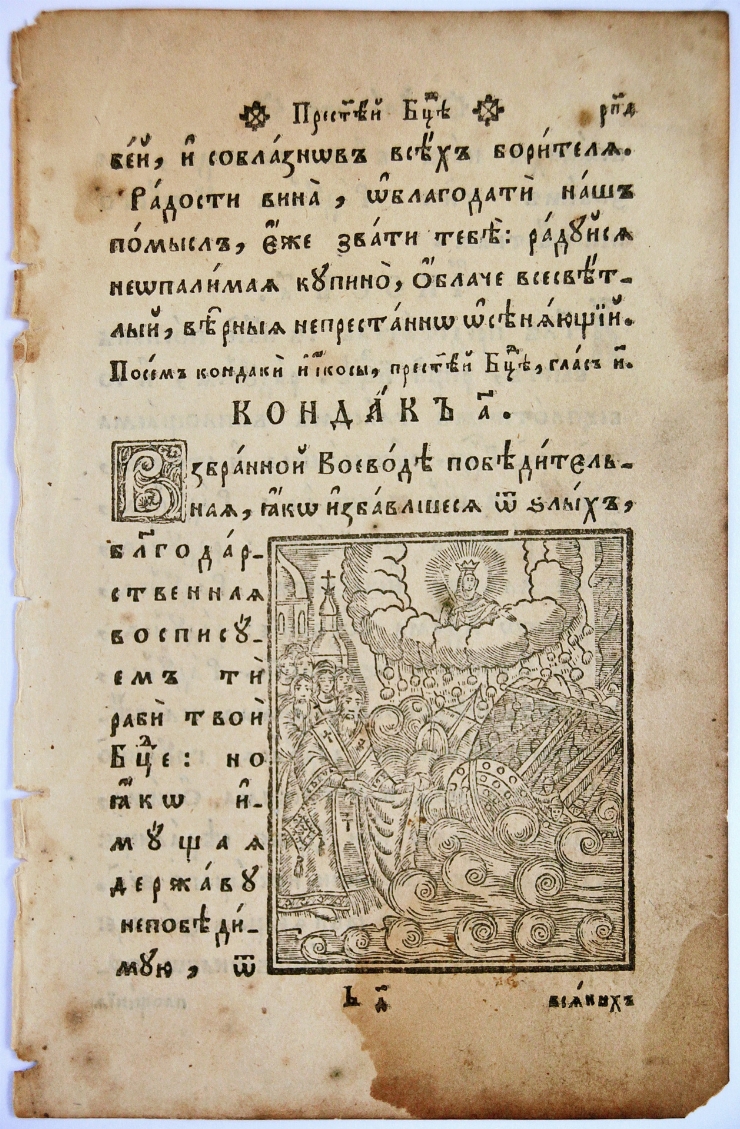 Прест҃ѣй Бцⷣѣ рп҃д
ве́й, и҆ собла́знѡвъ всѣ́хъ бори́телѧ.
Ра́дости вина̀, ѡ҆благодатѝ на́шъ
по́мыслъ, є҆́же зва́ти тебѣ̀: ра́дꙋйсѧ
неѡпали́маѧ кꙋпинò, ѻ҆́блаче всесвѣ́т-
лый, вѣ̑рныѧ непреста́ннѡ ѡ҆сѣнѧ́ющїй.
Посе́мъ кондакѝ и҆ і҆́косы, прест҃ѣй Бцⷣѣ, гла́съ и҃.
КОНДА́КЪ а҃.
Взбра́нной Воево́дѣ побѣди́тель-
наѧ, ꙗ҆́кѡ и҆зба́вльшесѧ ѿ ѕлы́хъ,
бл҃года́р-
ственнаѧ
восписꙋ́-
емъ тѝ
рабѝ твоѝ
Бцⷣе: но
ꙗ҆́кѡ и҆-
мꙋ́щаѧ
держа́вꙋ
непобѣди́-
мꙋю, ѿ
Ь д҃ всѧ́кихъ